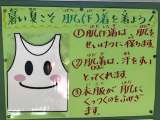 暑い夏こそ 肌(下)着を着よう！
①肌着は、肌を
せいけつに保ちます。
②肌着は、汗をすい
とってくれます。
③木服が肌に
くっつくのをふせぎ
ます。